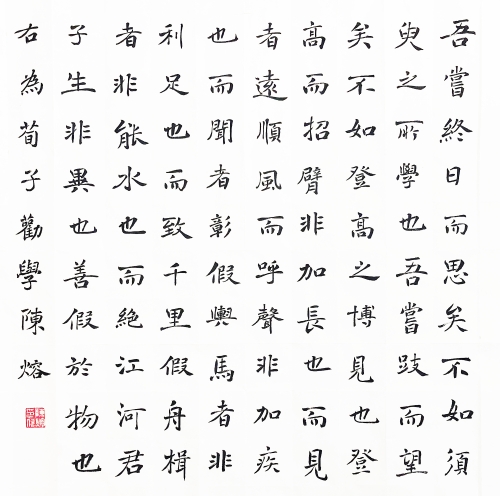 吾嘗終日而思矣不如須
臾之所學也吾嘗跂而望
矣不如登高之博見也登
高而招臂非加長也而見
者遠順風而呼聲非加疾
也而聞者彰假輿馬者非
利足也而致千里假舟楫
者非能水也而絕江河君
子生非異也善假於物也
右為荀子勸學陳熔